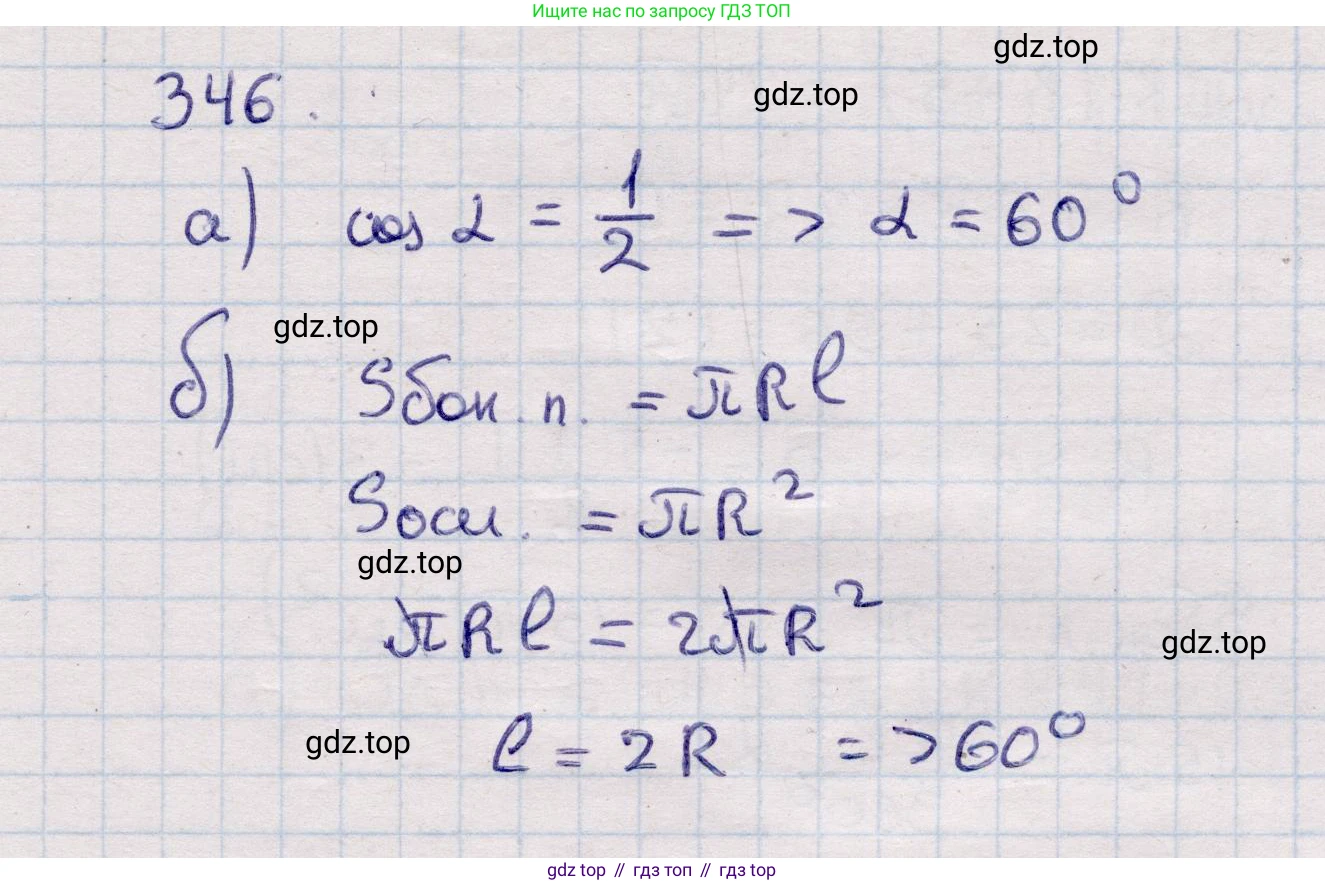 Ищите нас по запросу ГДЗ ТОП
gdz.top
gdz.top
346.
а) cos α = 1/2 => α = 60°
gdz.top
б) Sбок.п. = πRl
Sосн. = πR²
gdz.top
πRl = 2πR²
gdz.top
gdz.top
l = 2R => 60°
gdz top // гдз топ // гдз top